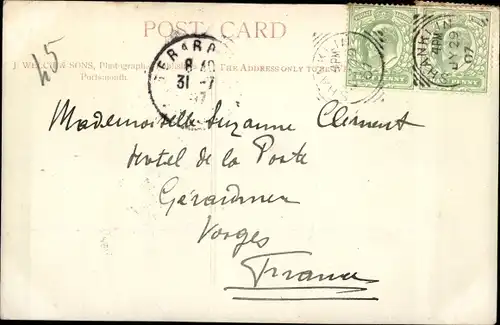 POST CARD
45
J. WELCH & SONS, Photograph
THE ADDRESS ONLY TO BE
Portsmouth.
GERARD
8 40
31 -7
SHANKLIN
JY 29
07
Mademoiselle Suzanne Clément
Hotel de la Poste
Gérardmer
Vosges
France